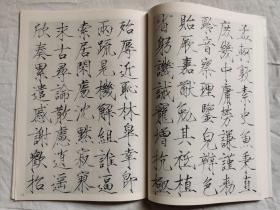 孟軻敦素史魚秉直
庶幾中庸勞謙謹敕
聆音察理鑒皃辯色
貽厥嘉猷勉其祗植
省躬譏誡寵增抗極
殆辱近恥林皋幸即
兩疏見機解組誰逼
索居閑處沉默寂寥
求古尋論散慮逍遙
欣奏累遣慼謝歡招